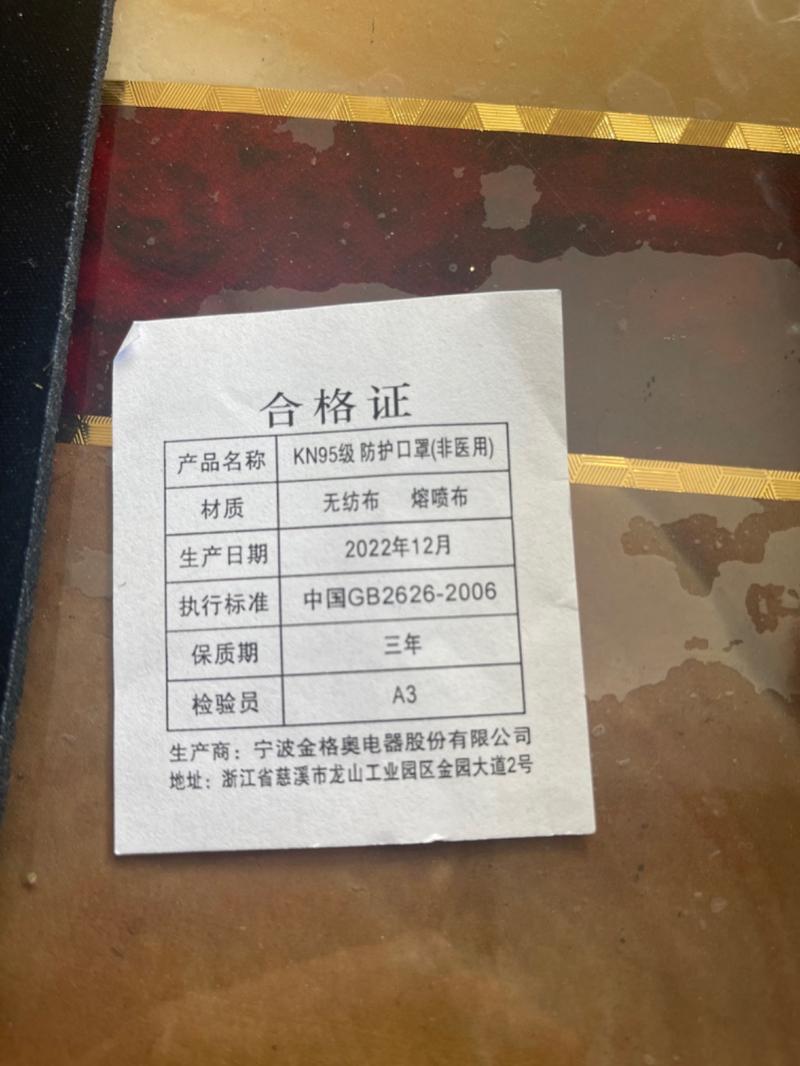 合格证
产品名称 KN95级 防护口罩(非医用)
材质 无纺布 熔喷布
生产日期 2022年12月
执行标准 中国GB2626-2006
保质期 三年
检验员 A3
生产商：宁波金格奥电器股份有限公司
地址：浙江省慈溪市龙山工业园区金园大道2号